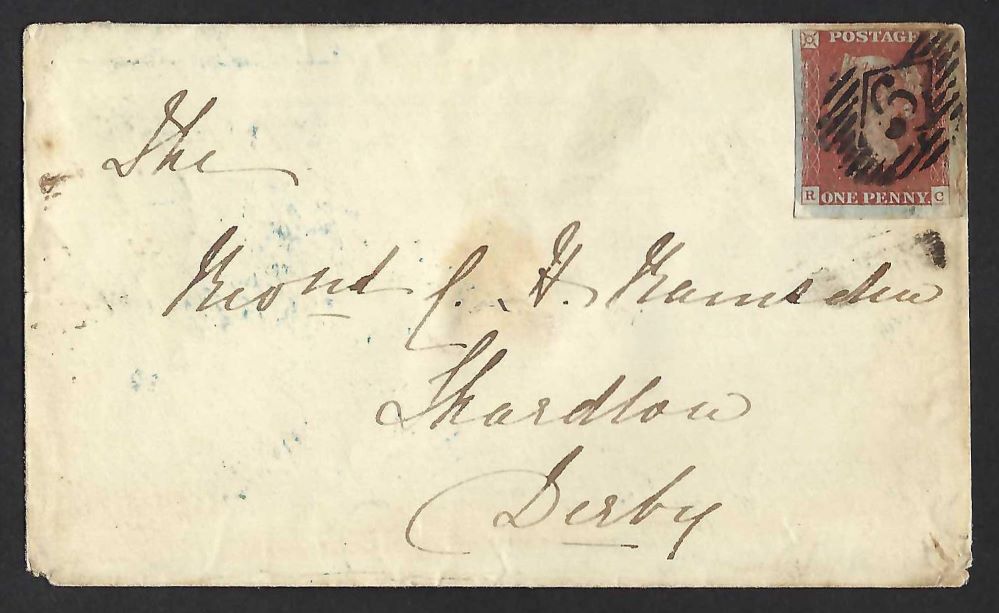 POSTAGE
R ONE PENNY. C
The
Revd. C. H. Ramsden
Shardlow
Derby